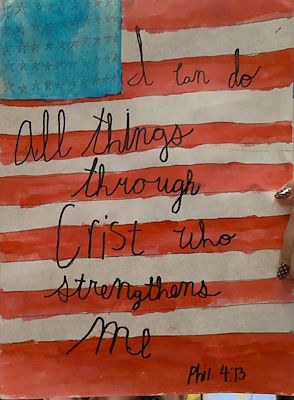 I can do
all things
through
Crist who
strengthens
me
Phil. 4:13